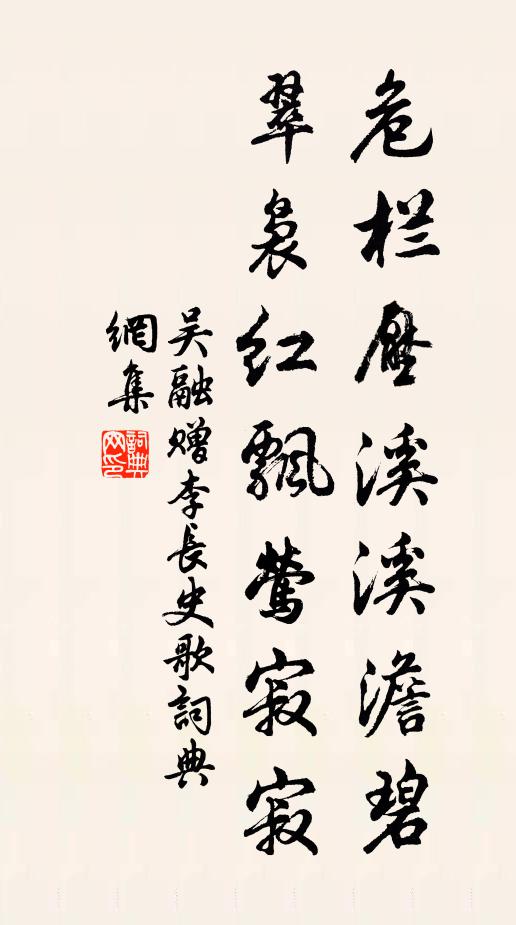 危栏压溪溪澹碧
翠袅红飘莺寂寂
吴融赠李長史歌詞典
網集
詞典网印